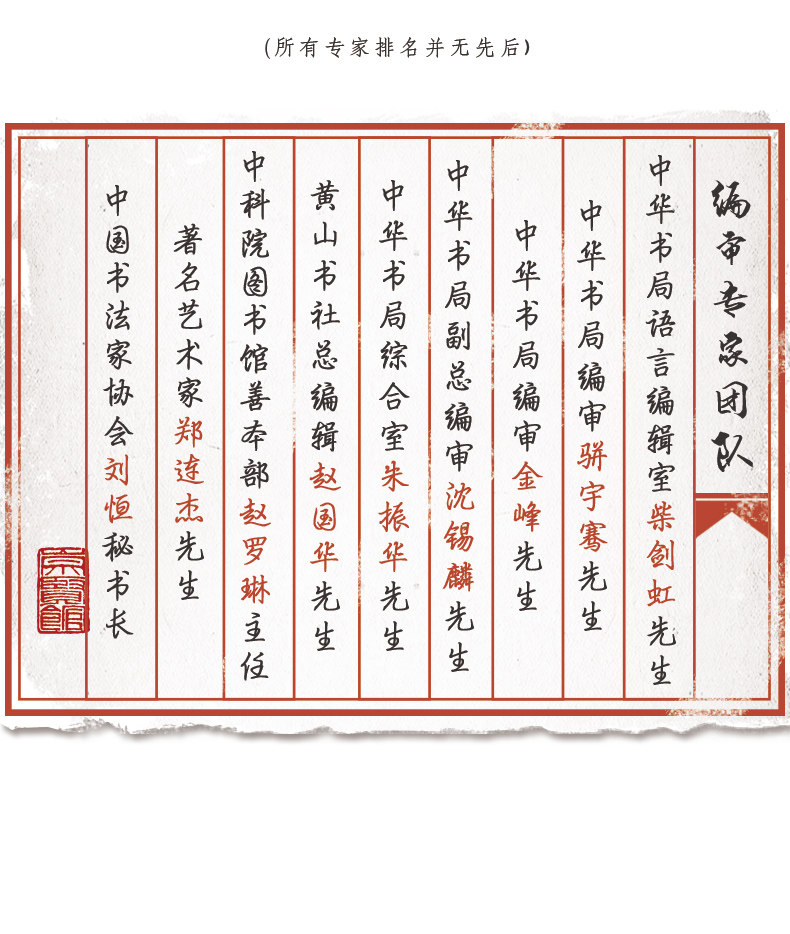 (所有专家排名并无先后)
编审专家团队
中华书局语言编辑室柴剑虹先生
中华书局编审骈宇骞先生
中华书局编审金峰先生
中华书局副总编审沈锡麟先生
中华书局综合室朱振华先生
黄山书社总编辑赵国华先生
中科院图书馆善本部赵罗琳主任
著名艺术家郑连杰先生
中国书法家协会刘恒秘书长
京賢館